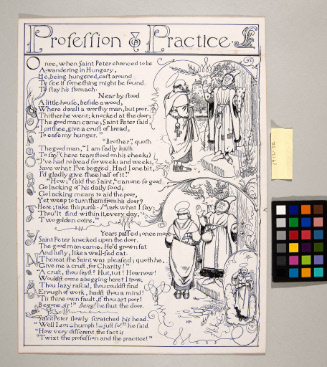 Profession & Practice.
Once, when Saint Peter chanced to be
A-wandering in Hungary,
He, being hungered, cast around
To see if something might be found
To stay his stomach.
Near by stood
A little house, beside a wood,
Where dwelt a worthy man, but poor.
Thither he went; knocked at the door;
The good man came; Saint Peter said,
"I prithee, give a crust of bread,
To ease my hunger."
"Brother", quoth
The good man, "I am sadly loth
To say" (here tears stood on his cheeks)
"I've had no bread for weeks and weeks,
Save what I've begged. Had I one bit,
I'd gladly give thee half of it."
"How," said the Saint, "can one so good
Go lacking of his daily food;
Go lacking means to aid the poor,
Yet weep to turn them from his door?
Here; take this purse. Mark what I say:
Thou'lt find within it, every day,
Two golden coins."
Years passed; once more
Saint Peter knocked upon the door.
The good man came. He'd grown fat
And lusty, like a well-fed cat.
Thereat the Saint was pleased; quoth he,
"Give me a crust, for Charity!"
"A crust, thou say'st? Hut, tut! How now?
Would'st come a-begging here? I trow,
Thou lazy rascal, thou could'st find
Enough of work, hadst thou a mind!
'Tis thine own fault, if thou art poor!
Begone, sir!" Bang! he shut the door.
Saint Peter slowly scratched his head.
"Well I am – humph! – just so!" he said.
"How very different the fact is
'Twixt the profession and the practice!"